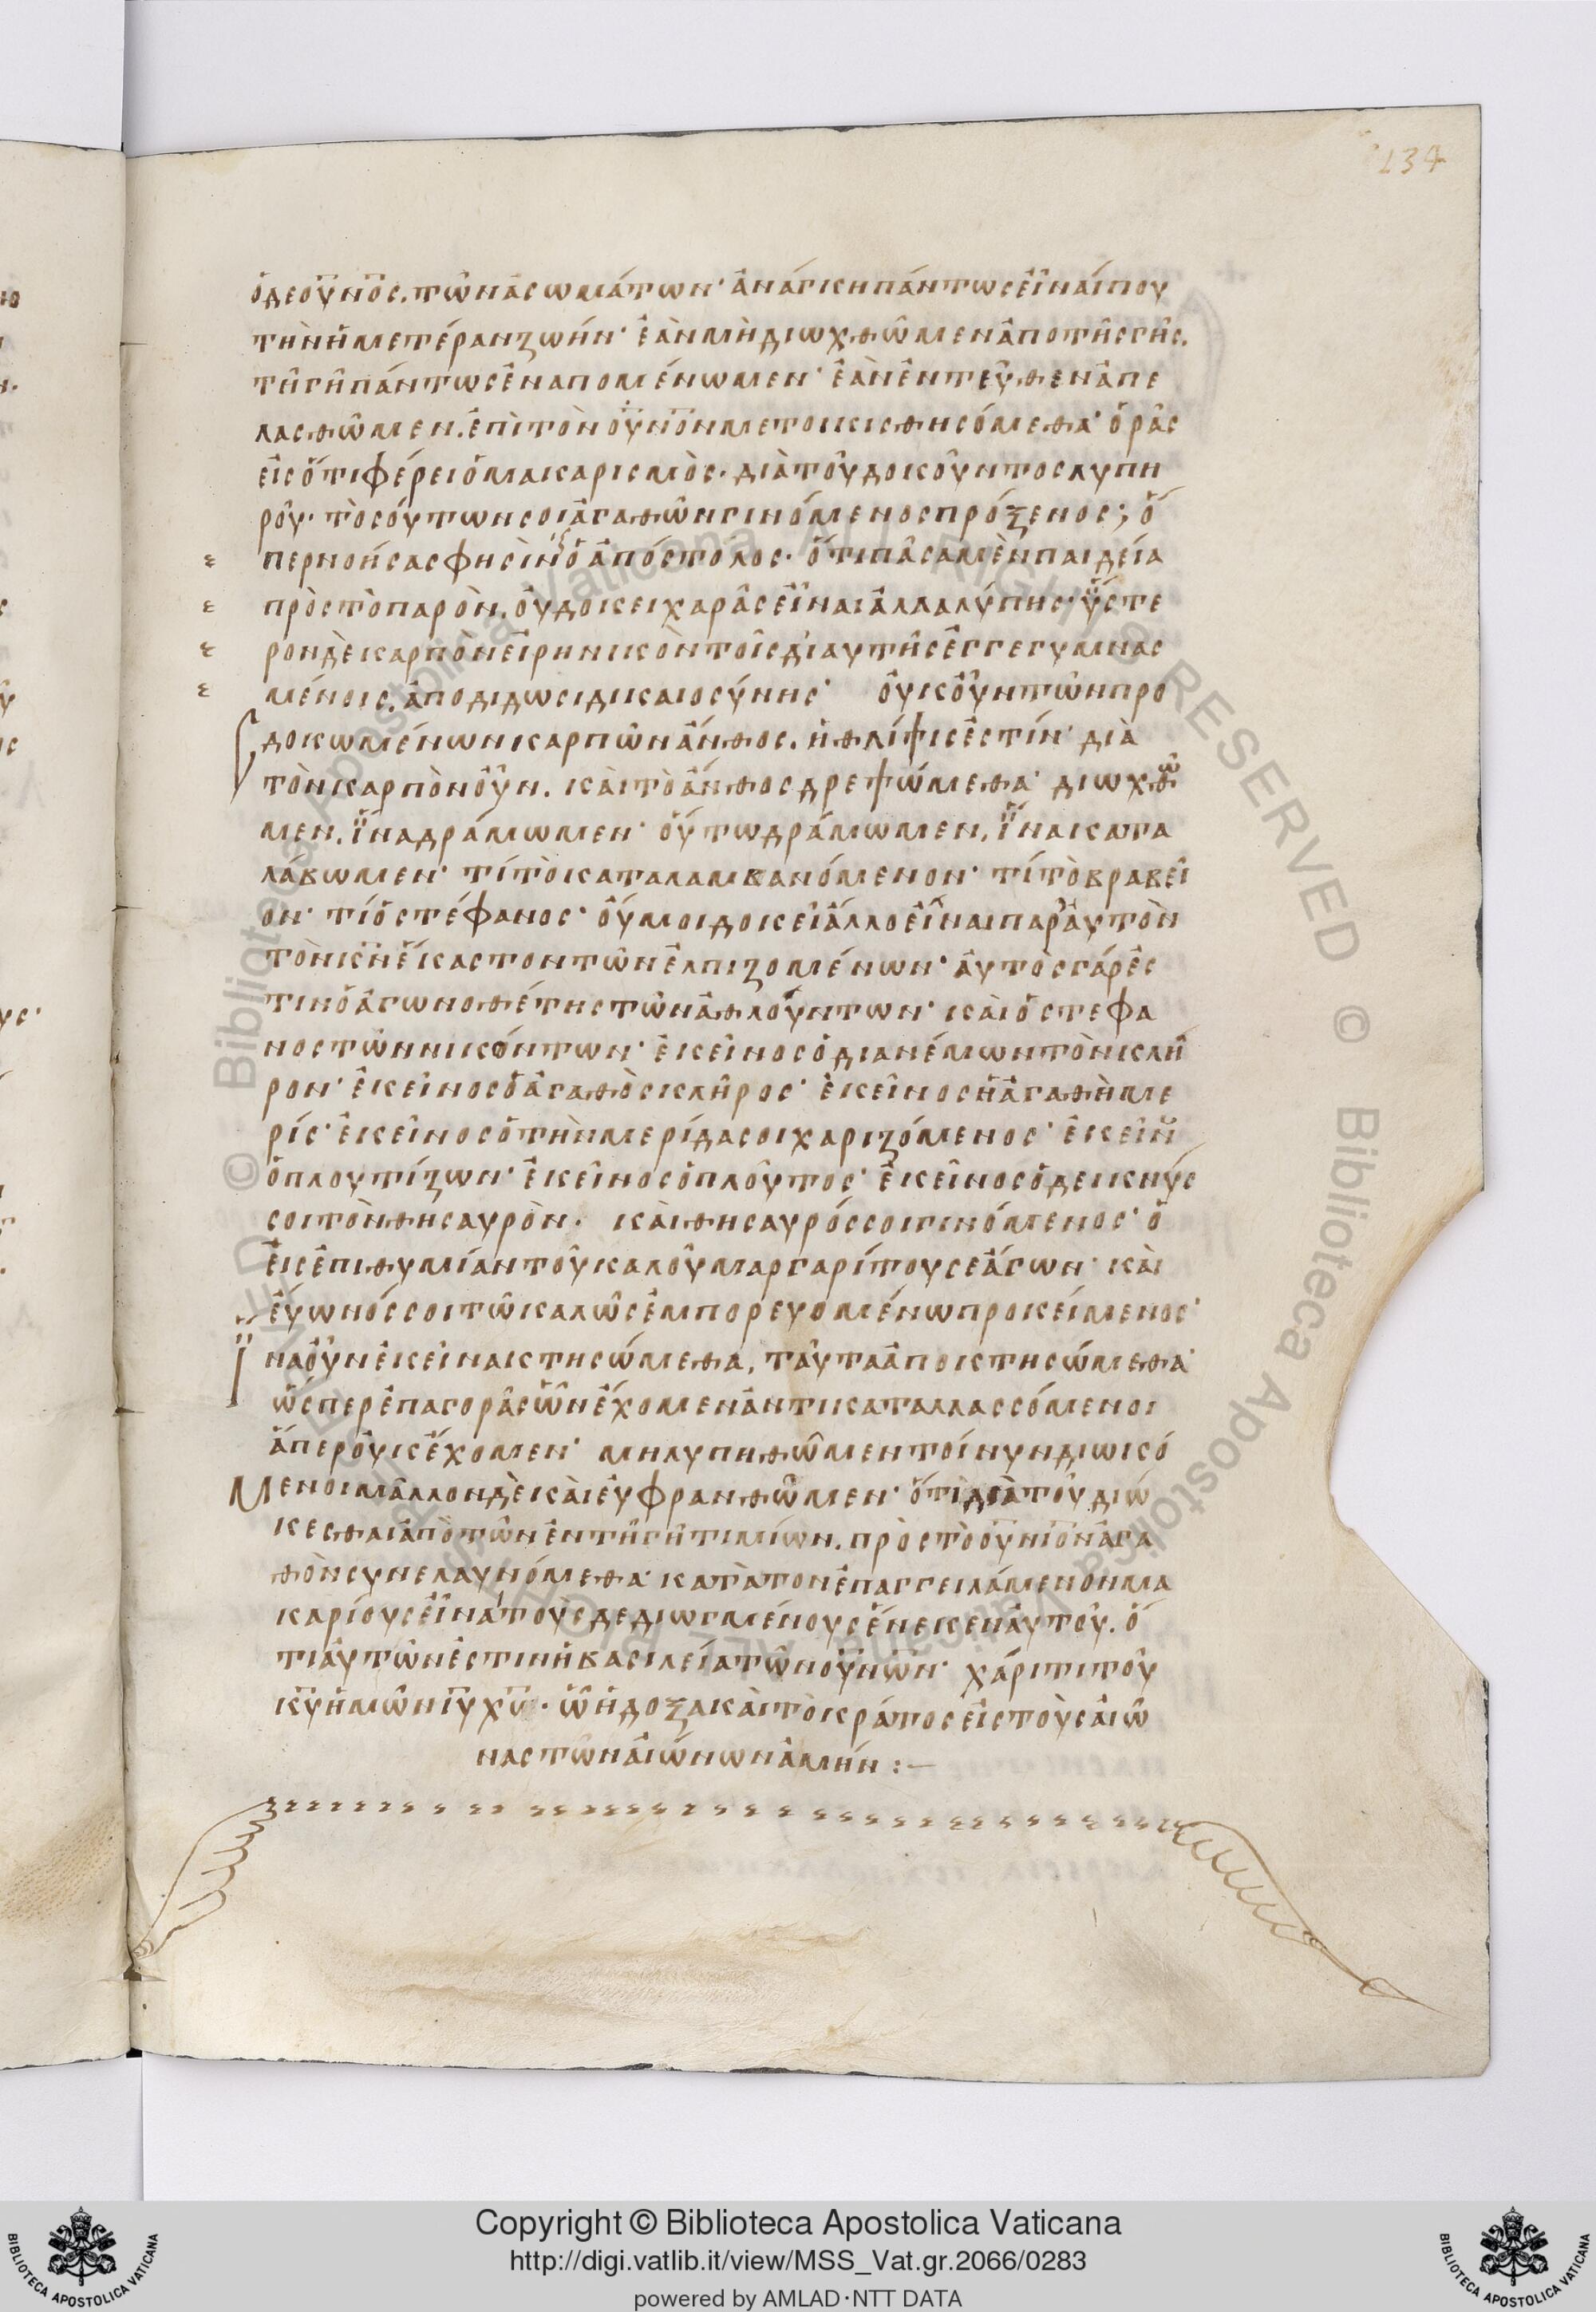 134
ὁ δὲ ουνος. τῶν ἀσωμάτων· ἀνάγκη πάντως εἶναί που
τὴν ἡμετέραν ζωήν· ἐὰν μὴ διωχθῶμεν ἀπο τῆς γῆς.
τῆ γῆ πάντως ἐναπομένωμεν· ἐὰν ἐντεῦθεν ἀπε
λασθῶμεν. ἐπὶ τὸν ουνον μετοικισθησόμεθα· ὁρᾶς
εἰς ὅτι φέρει ὁ μακαρισμὸς· διὰ τοῦ δοκοῦντος λυπη
ροῦ· τοσούτων σοι ἀγαθῶν γινόμενος πρόξενος; ὅ
περ νοήσας φησὶν ὁ ἀπόστολος· ὅτι πᾶσα μὲν παιδεία
πρὸς τὸ παρὸν. οὐ δοκει χαρᾶς εἶναι ἀλλα λύπης· ὕστε
ρον δὲ καρπὸν εἰρηνικὸν τοῖς δι αυτῆς ἐγγεγυμνας
μένοις. ἀποδιδωσι δικαιοσύνης· οὐκοῦν τῶν προ
δοκωμένων καρπῶν ἄνθος. ἡ θλίψις ἐστίν· διὰ
τὸν καρπὸν οὖν. καὶ τὸ ἄνθος δρεψώμεθα· διωχθῶ
μεν. ἵνα δράμωμεν· οὕτω δράμωμεν, ἵνα κατα
λάβωμεν· τί τὸ καταλαμβανόμενον· τί τὸ βραβεῖ
ον· τί ὁ στέφανος· οὔ μοι δοκεῖ ἄλλο εἶναι παρ αὐτὸν
τὸν κν ἕκαστον τῶν ἐλπιζομένων· ἀυτὸς γάρ ἐς
τιν ὁ ἀγωνοθέτης τῶν ἀθλούντων· καὶ ὁ στεφα
νος τῶν νικόντων· ἐκεῖνος ὁ διανέμων τὸν κλῆ
ρον· ἐκεῖνος ὁ ἀγαθὸς κλῆρος· ἐκεῖνος ἡ ἀγαθὴ με
ρίς· ἐκεῖνος ὁ τὴν μερίδα σοι χαριζόμενος· ἐκεῖν
ὁ πλουτίζων· ἐκεῖνος ὁ πλοῦτος· ἐκεῖνος ὁ δεικνύς
σοι τὸν θησαυρὸν. καὶ θησαυρός σοι γινόμενος· ὁ
εἰς ἐπιθυμίαν τοῦ καλοῦ μαργαρίτου σε ἄγων· καὶ
ἐύωνός σοι τῶ καλῶς ἐμπορευομένω προκείμενος·
Ἵνα οὖν ἐκεῖνα κτησώμεθα, ταῦτα ἀποκτησώμεθα·
ὥσπερ ἐπ αγορᾶς ὧν ἔχομεν ἀντικαταλλασσόμενοι
ἅπερ οὐκ ἔχομεν· μη λυπηθῶμεν τοίνυν διωκό
Μενοι μᾶλλον δὲ καὶ ἐυφρανθῶμεν· ὅτι διὰ τοῦ διώ
κεσθαι ἀπὸ τῶν ἐν τῆ γῆ τιμίων. πρὸς τὸ ουνιον ἀγα
θὸν συνελαυνόμεθα· κατὰ τον ἐπαγγειλάμενον μα
καρίους εἶναι τοὺς δεδιωγμένους ἕνεκεν ἀυτοῦ. ὅ
τι ἀυτῶν ἐστιν ἡ βασιλεία τῶν ουνων· χάριτι τοῦ
κυ ἡμῶν ιυ χυ· ὧ ἡ δοξα καὶ τὸ κράτος εἰς τοὺς ἀιῶ
νας τῶν ἀιώνων ἀμήν :—
Copyright © Biblioteca Apostolica Vaticana
http://digi.vatlib.it/view/MSS_Vat.gr.2066/0283
powered by AMLAD·NTT DATA
BIBLIOTECA APOSTOLICA VATICANA
BIBLIOTECA APOSTOLICA VATICANA